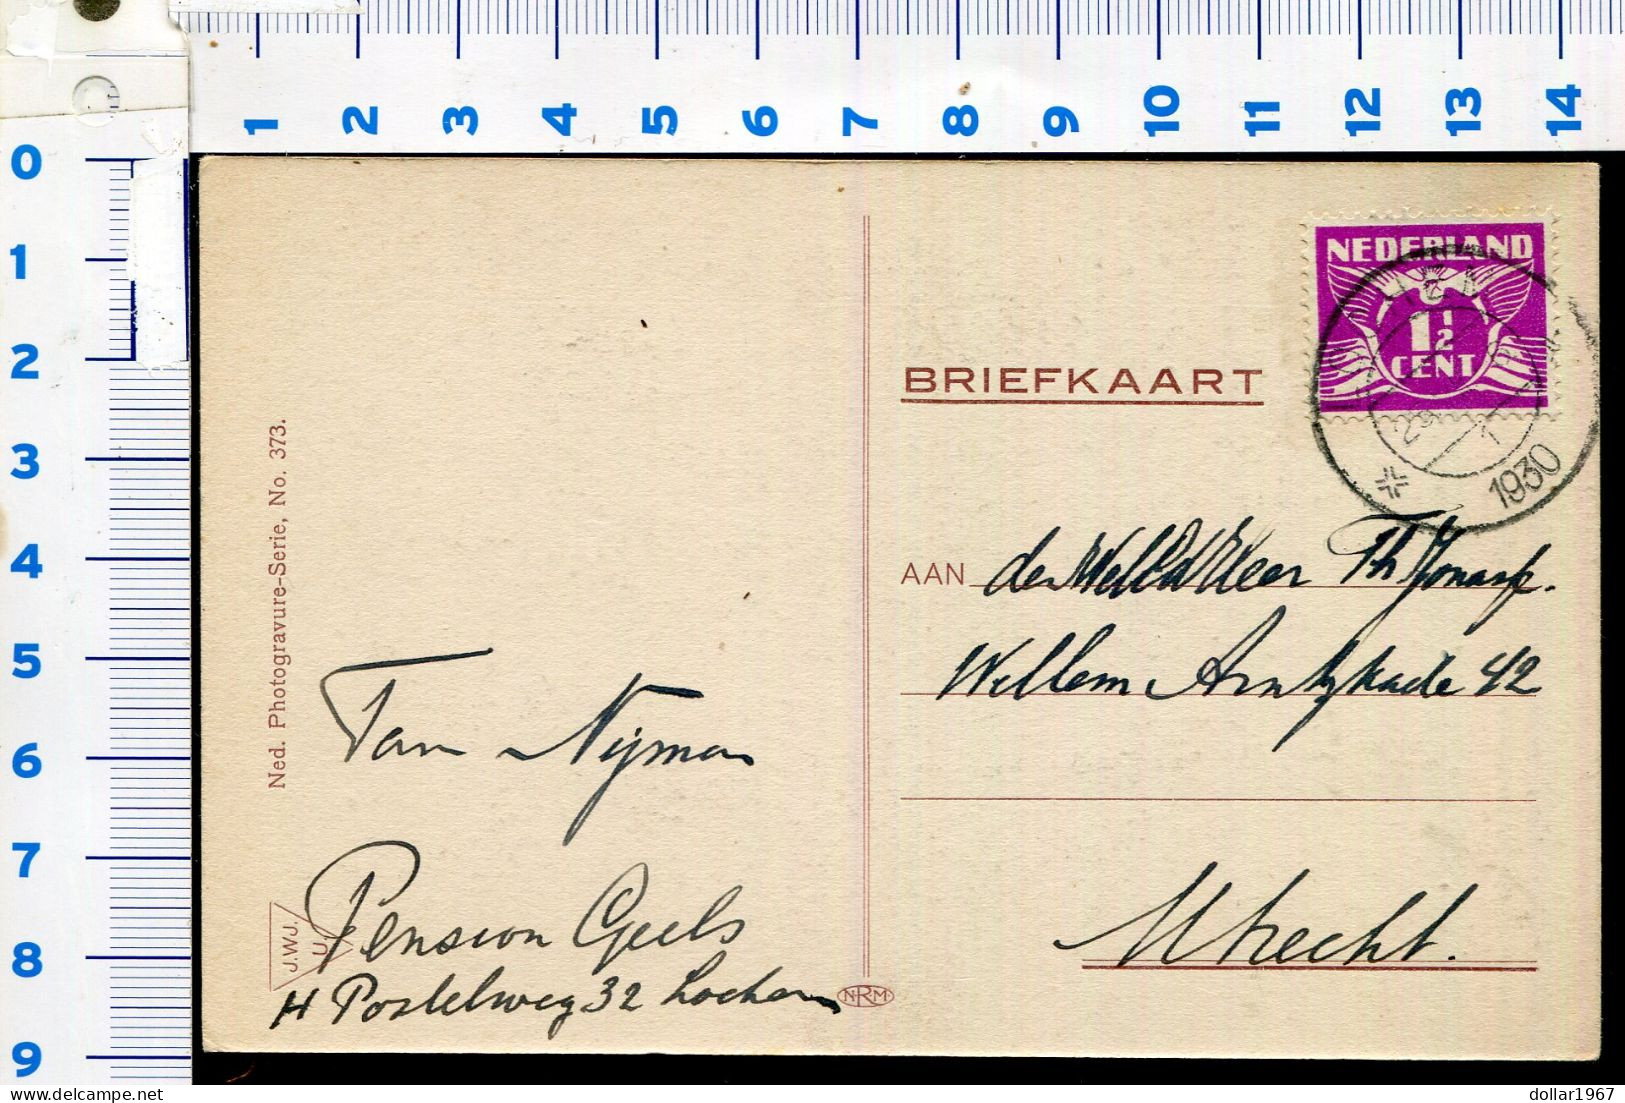 1 2 3 4 5 6 7 8 9 10 11 12 13 14
0
1
2
3
4
5
6
7
8
9
NEDERLAND
1½
CENT
1930
BRIEFKAART
AAN de WelEd Heer Th
Willem Arntzkade 42
Utrecht.
Ned. Photogravure-Serie, No. 373.
Tan Nijman
Pension Geels
H Postelweg 32 Lochem
J.WJ.
U.
NRM
dollar1967